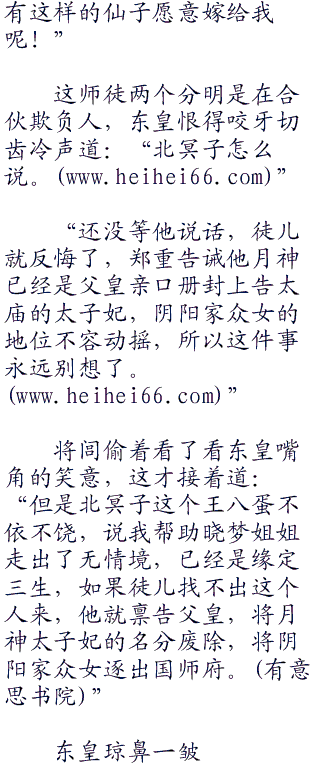 有这样的仙子愿意嫁给我
呢！”
这师徒两个分明是在合
伙欺负人，东皇恨得咬牙切
齿冷声道：“北冥子怎么
说。(www.heihei66.com)”
“还没等他说话，徒儿
就反悔了，郑重告诫他月神
已经是父皇亲口册封上告太
庙的太子妃，阴阳家众女的
地位不容动摇，所以这件事
永远别想了。
(www.heihei66.com)”
将闾偷着看了看东皇嘴
角的笑意，这才接着道：
“但是北冥子这个王八蛋不
依不饶，说我帮助晓梦姐姐
走出了无情境，已经是缘定
三生，如果徒儿找不出这个
人来，他就禀告父皇，将月
神太子妃的名分废除，将阴
阳家众女逐出国师府。(有意
思书院)”
东皇琼鼻一皱